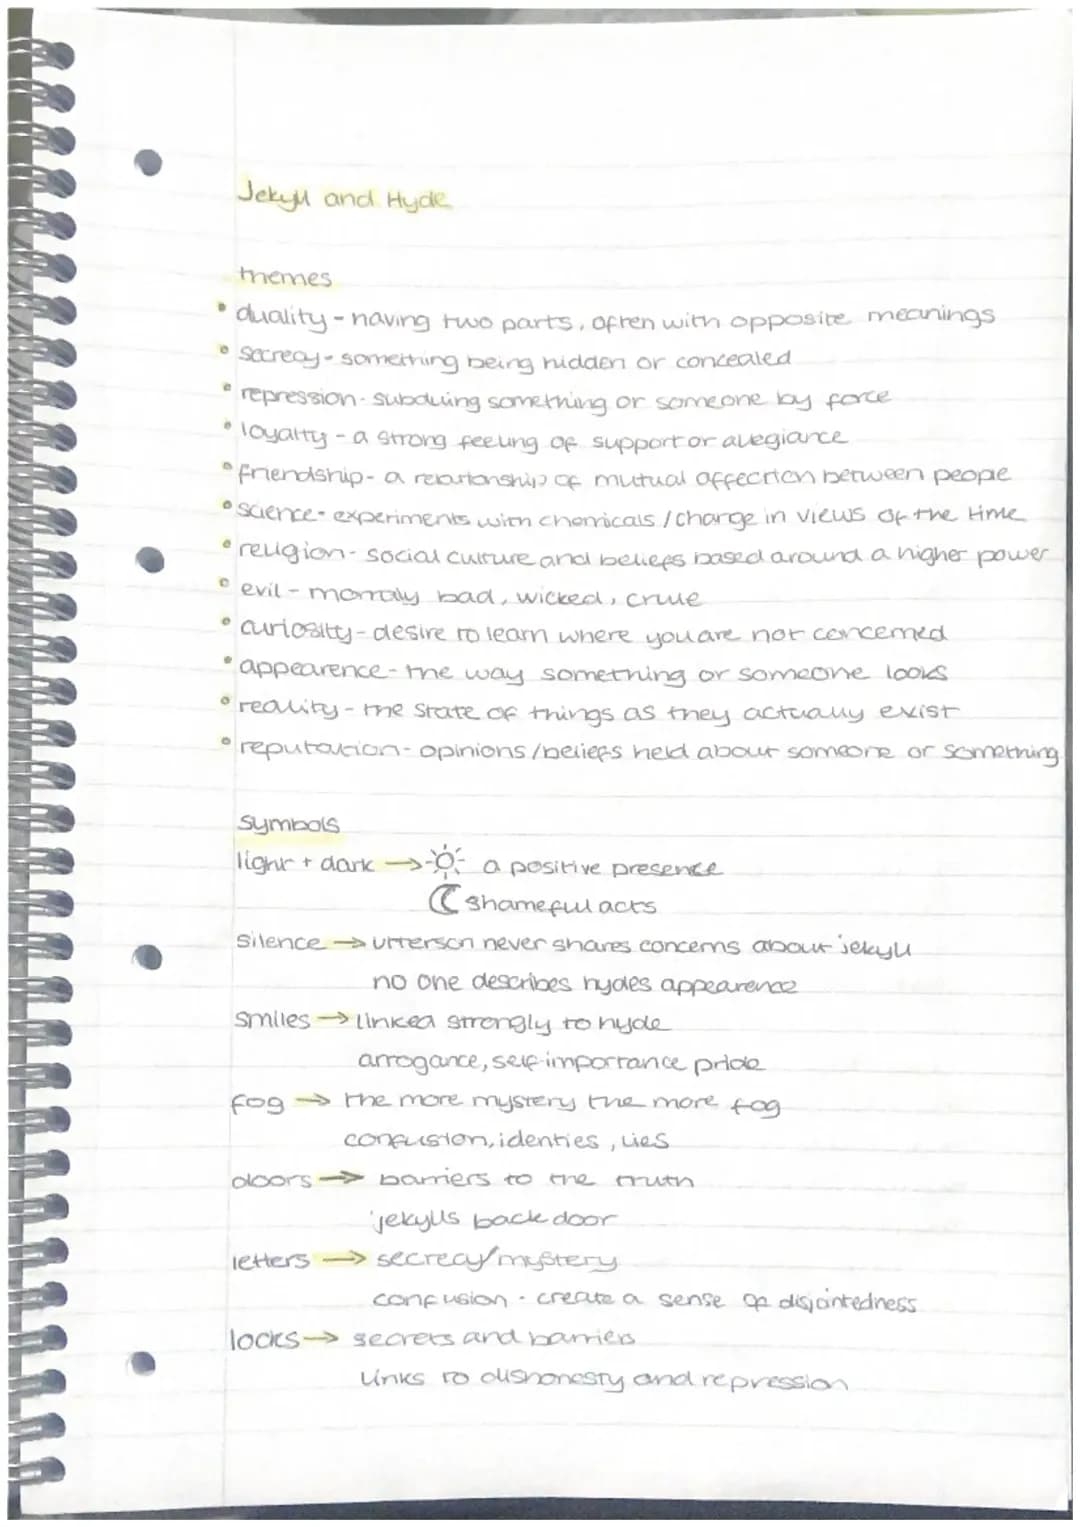 Jekyll and Hyde
themes
• duality - having two parts, often with opposite meanings
• secrecy - something being hidden or concealed
• repression - subduing something or someone by force
• loyalty - a strong feeling of support or allegiance
• friendship - a relationship of mutual affection between people
• science - experiments with chemicals / change in views of the time
• religion - social culture and beliefs based around a higher power
• evil - morraly bad, wicked, crule
• curiosity - desire to learn where you are not concerned
• appearence - the way something or someone looks
• reality - the state of things as they actually exist
• reputation - opinions/beliefs held about someone or something
symbols
light + dark → a positive presence
shameful acts
silence → utterson never shares concerns about jekyll
no one describes hydes appearence
smiles → linked strongly to hyde
arrogance, self-importance pride
fog → the more mystery the more fog
confusion, identies, lies
doors → barriers to the truth
jekylls back door
letters → secrecy/mystery
confusion - create a sense of disjointedness
locks → secrets and barriers
links to dishonesty and repression